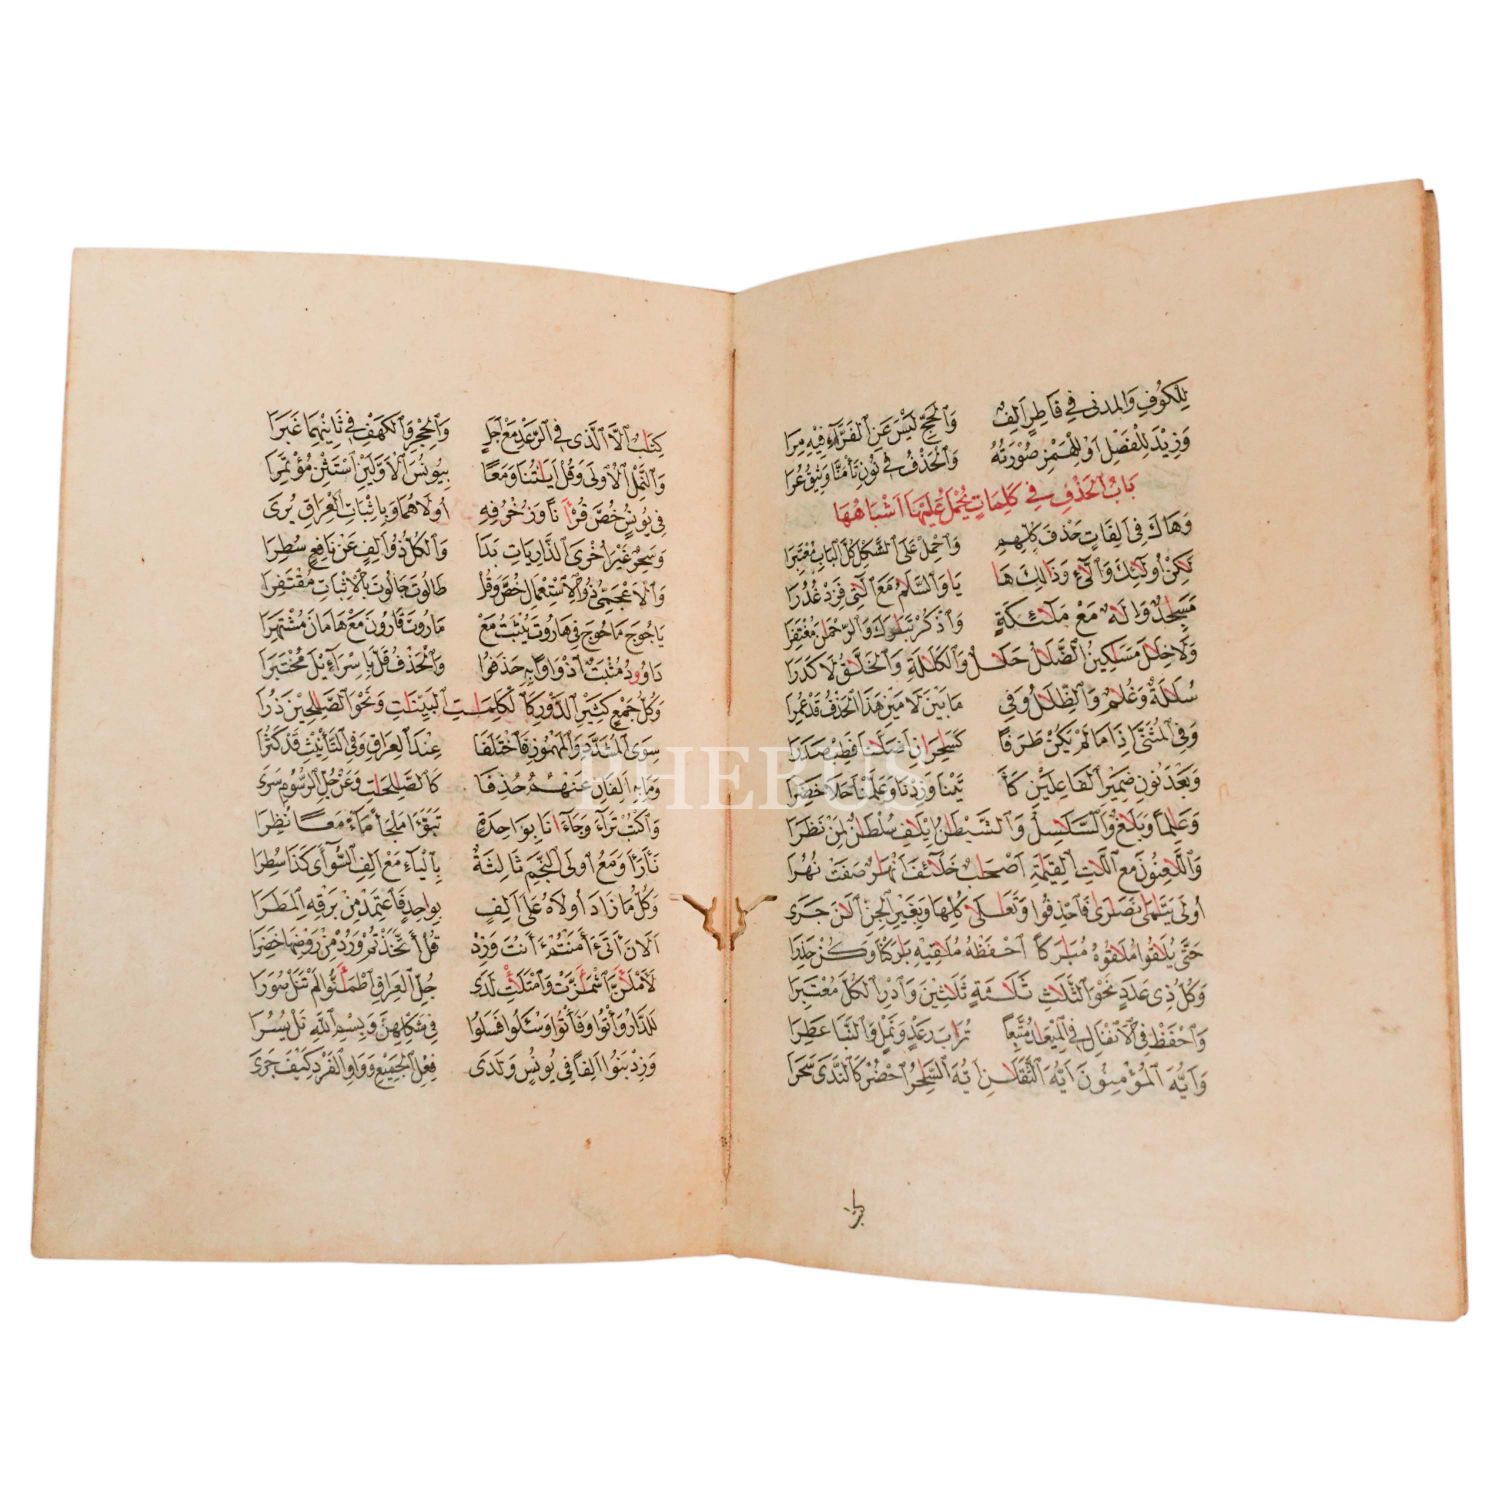 لِلْكُوفِ وَالْمَدَنِى فِى فَاطِرٍ اَلِفٌ وَالْحَجِّ لَيْسَ عَنِ الْفَرَّاءِ فِيهِ مِرَا
وَزِيدَ لِلْفَصْلِ اَوْ لِلْهَمْزِ صُورَتُهُ وَالْحَذْفُ فِى نُونِ تَأْمَنَّا وَثِيقُ عُرَا
بَابُ الْحَذْفِ فِى كَلِمَاتٍ يُحْمَلُ عَلَيْهَا اَشْبَاهُهَا
وَهَاكَ فِى كَلِمَاتٍ حَذْفَ كُلِّهِمِ وَاحْمِلْ عَلَى الشَّكْلِ كُلَّ الْبَابِ مُعْتَبِرَا
لٰكِنْ اُولٰئِكَ وَالّٰئِى وَذٰلِكَ هَا يَا وَالسَّلٰمُ مَعَ الّٰتِى فَرِدْ غُدُرَا
مَسٰجِدٌ وَاِلٰهٌ مَعْ مَلٰئِكَةٍ وَاذْكُرْ تَبٰرَكَ وَالرَّحْمٰنُ مُغْتَفِرَا
وَلَا خِلٰلَ مَسٰكِينُ الضَّلٰلُ حَلٰلٌ وَالْكَلٰلَةِ وَالْخَلّٰقُ لَا كَدَرَا
سُلٰلَةٌ وَغُلٰمٌ وَالظِّلٰلُ وَفِى مَا بَيْنَ لَامَيْنِ هٰذَا الْحَذْفُ قَدْ عُمِرَا
وَفِى الْمُثَنّٰى اِذَا مَا لَمْ يَكُنْ طَرَفًا كَسٰحِرٰنِ اَضَلّٰنَا فَطِبْ صَدَرَا
وَبَعْدَ نُونِ ضَمِيرِ الْفَاعِلِينَ كَاٰ تَيْنٰا وَزِدْنٰا وَعَلَّمْنٰا حَلَا خَضِرَا
وَعٰلِمًا وَبَلٰغٌ وَالسَّلٰسِلَ وَالشَّيْطٰنُ اِيلٰفِ سُلْطٰنٌ لِمَنْ نَظَرَا
وَاللّٰعِنُونَ مَعَ اللّٰتَ الْقِيٰمَةِ اَصْحٰبٌ خَلٰئِفَ اَنْهٰرٌ صَفَتْ نُهُرَا
اُولٰى يَتٰمٰى نَصٰرٰى فَاحْذِفُوا وَتَعٰلٰى كُلَّهَا وَبِغَيْرِ الْجِنِّ اَلْاٰنَ جَرٰى
حَتّٰى يُلٰقُوا مُلٰقُوهُ مُبٰرَكًا احْفَظْهُ مُلٰقِيهِ بٰرَكْنَا وَكُنْ حَذِرَا
وَكُلُّ ذِى عَدَدٍ نَحْوُ الثَّلٰثِ ثَلٰثَةٍ ثَلٰثِينَ فَادْرِ الْكُلَّ مُعْتَبِرَا
وَاحْفَظْ فِى الْاَنْفَالِ فِى الْمِيعٰدِ مُتَّبِعًا تُرٰبَ رَعْدٍ وَنَمْلٍ وَالنَّبَا عَطِرَا
وَاَيُّهَ الْمُؤْمِنُونَ اَيُّهَ الثَّقَلٰنِ اَيُّهَ السّٰحِرُ احْضُرْ كَالنَّدٰى سَحَرَا
كِتٰبٌ اِلَّا الَّذِى فِى الرَّعْدِ مَعْ اَجَلٍ وَالْحِجْرِ وَالْكَهْفِ فِى ثَانِيهِمَا غَبَرَا
وَالنَّمْلِ الْاُولٰى وَقُلْ اٰيٰتُنَا وَمَعًا بِيُونُسَ الْاَوَّلَيْنِ اسْتَثْنِ مُؤْتَمِرَا
فِى يُوسُفٍ خُصَّ قُرْاٰنًا وَزُخْرُفِهِ اُولَاهُمَا وَبِاِثْبَاتِ الْعِرَاقِ يُرٰى
وَسٰحِرٌ غَيْرَ اُخْرَى الذَّارِيَاتِ بَدَا وَالْكُلُّ ذُو اَلِفٍ عَنْ نَافِعٍ سُطِرَا
وَالْاَعْجَمِىُّ ذُو الْاِسْتِعْمَالِ خُصَّ وَقُلْ طَالُوتَ جَالُوتَ بِالْاِثْبَاتِ مُقْتَفِرَا
يَاجُوجَ مَاجُوجَ فِى هَارُوتَ يَثْبُتُ مَعْ مَارُوتَ قَارُونَ مَعْ هَامَانَ مُشْتَهِرَا
دَاوُودُ مُثْبَتٌ اِذْ وَاوٌ بِهِ حَذَفُوا وَالْحَذْفُ قَلَّ بِاِسْرَاءِيلَ مُخْتَبَرَا
وَكُلُّ جَمْعٍ كَثِيرِ الدَّوْرِ كَالْكَلِمٰتِ الْبَيِّنٰتِ وَنَحْوِ الصّٰلِحِينَ ذُرَا
سِوَى الْمُشَدَّدِ وَالْمَهْمُوزِ فَاخْتَلَفَا عِنْدَ الْعِرَاقِ وَفِى التَّأْنِيثِ قَدْ كَثُرَا
وَمَا بِهِ اَلِفَانِ عَنْهُمُ حُذِفَا كَالصّٰلِحٰتِ وَعَنْ جُلِّ الرُّسُومِ سَرٰى
وَاكْتُبْ تَرَاءَ وَجَاءَانَا بِوَاحِدَةٍ تَبَوَّءَا مَلْجَأً مَاءً مَعًا نُظَرَا
نَأٰى رَأٰى وَمَعْ اُولَى النَّجْمِ ثَالِثَةٌ بِالْيَاءِ مَعْ اَلِفِ السُّوأٰى كَذَا سُطِرَا
وَكُلُّ مَا زَادَ اُولَاهُ عَلٰى اَلِفٍ بِوَاحِدٍ فَاعْتَمِدْ مِنْ بَرْقِهِ الْمَطَرَا
اَلْاٰنَ اٰتٰى ءَاَمِنْتُمْ ءَاَنْتَ وَزِدْ قُلْ اَتَّخَذْتُمْ وَرُدْ مِنْ رَوْضِهَا خَضِرَا
لَاَمْلَأَنَّ اشْمَأَزَّتْ وَامْتَلَأْتِ لَدٰى جُلِّ الْعِرَاقِ اطْمَأَنُّوا لَمْ تَنَلْ صُوَرَا
لَلدَّارُ وَأْتُوا وَفَأْتُوا وَسْئَلُوا فَسَلُوا فِى شَكْلِهِنَّ وَبِسْمِ اللّٰهِ نَلْ يُسُرَا
وَزِدْ بَنُوا اَلِفًا فِى يُونُسٍ وَلَدٰى فِعْلِ الْجَمِيعِ وَوَاوِ الْفَرْدِ كَيْفَ جَرٰى
PHEBUS